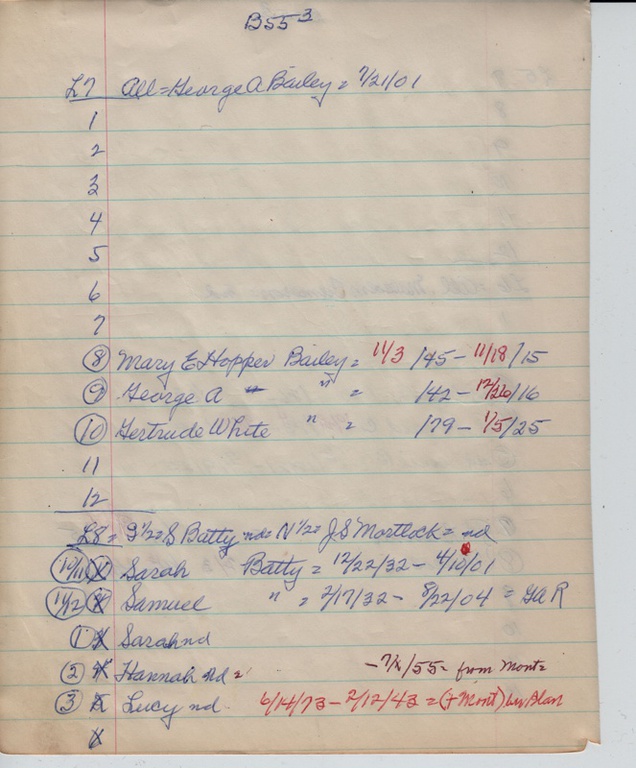 B55 3
L7 All = George A Bailey = 7/21/01
1
2
3
4
5
6
7
8 Mary E Hopper Bailey = 11/3/45 - 11/18/15
9 George A " = /42 - 12/26/16
10 Gertrude White " = /79 - 1/5/25
11
12
L8 = S 1/2 = S Batty nd = N 1/2 = J S Mortlock = nd
Sarah Batty = 12/22/32 - 4/10/01
Samuel " = 2/17/32 - 8/22/04 = GAR
1 Sarah nd
2 Hannah nd = - 7/x/55 = from Mont =
3 Lucy nd 6/14/73 - 2/12/43 = (+ Mont)